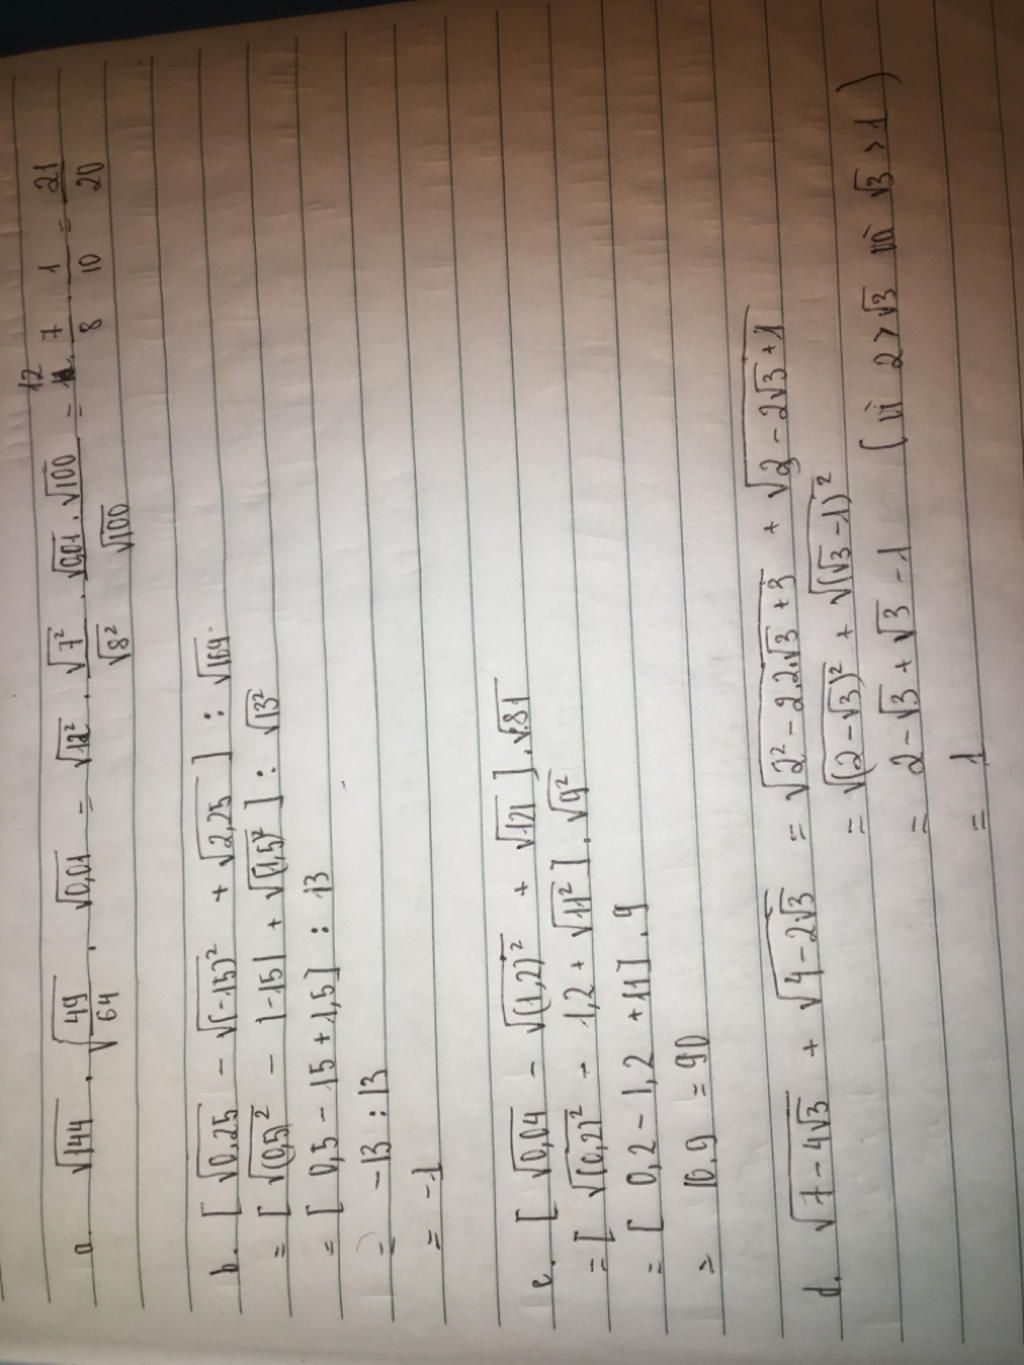 a. √144 . √(49/64) . √0,01 = √12² . √7²/√8² . √0,01 . √100/√100 = 12 . 7/8 . 1/10 = 21/20
b. [√0.25 - √(-15)² + √2,25] : √169
= [√(0,5)² - |-15| + √(1,5)²] : √13²
= [0,5 - 15 + 1,5] : 13
= -13 : 13
= -1
c. [√0,04 - √(1,2)² + √121] . √81
= [√(0,2)² - 1,2 + √11²] . √9²
= [0,2 - 1,2 + 11] . 9
= 10.9 = 90
d. √(7 - 4√3) + √(4 - 2√3) = √(2² - 2.2.√3 + 3) + √(2 - 2√3 + 1)
= √(2 - √3)² + √(√3 - 1)²
= 2 - √3 + √3 - 1 (vì 2 > √3 và √3 > 1)
= 1